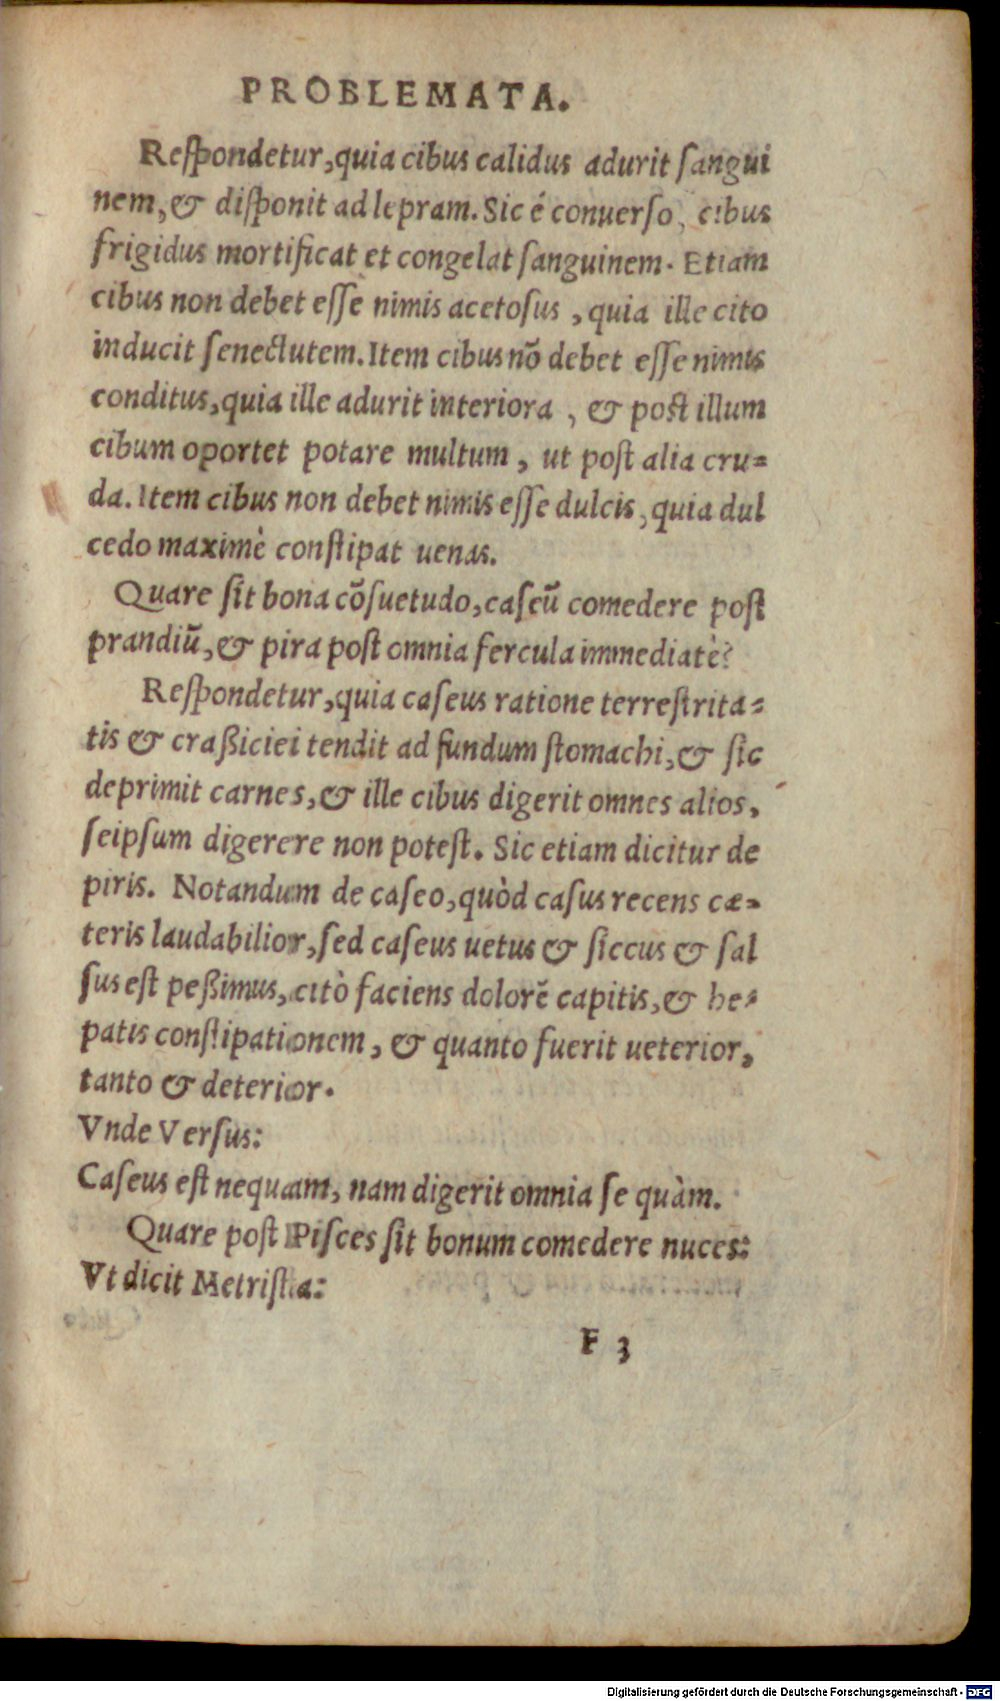 PROBLEMATA.
Reſpondetur,quia cibus calidus adurit ſangui
nem,& diſponit ad lepram. Sic é conuerſo, cibus
frigidus mortificat et congelat ſanguinem. Etiam
cibus non debet eſſe nimis acetoſus , quia ille cito
inducit ſenectutem. Item cibus nõ debet eſſe nimis
conditus,quia ille adurit interiora , & poſt illum
cibum oportet potare multum , ut poſt alia cru=
da. Item cibus non debet nimis eſſe dulcis,quia dul
cedo maximè conſtipat uenas.
Quare ſit bona cõſuetudo,caſeũ comedere poſt
prandiũ,& pira poſt omnia fercula immediatè?
Reſpondetur,quia caſeus ratione terreſtrita=
tis & craßiciei tendit ad fundum ſtomachi,& ſic
deprimit carnes,& ille cibus digerit omnes alios,
ſeipſum digerere non poteſt. Sic etiam dicitur de
piris. Notandum de caſeo,quòd caſus recens cæ=
teris laudabilior,ſed caſeus uetus & ſiccus & ſal
ſus eſt peßimus,citò faciens dolorẽ capitis,& he=
patis conſtipationem, & quanto fuerit ueterior,
tanto & deterior.
Vnde Verſus:
Caſeus eſt nequam, nam digerit omnia ſe quàm.
Quare poſt Piſces ſit bonum comedere nuces:
Vt dicit Metriſta:
F 3
Digitalisierung gefördert durch die Deutsche Forschungsgemeinschaft - DFG